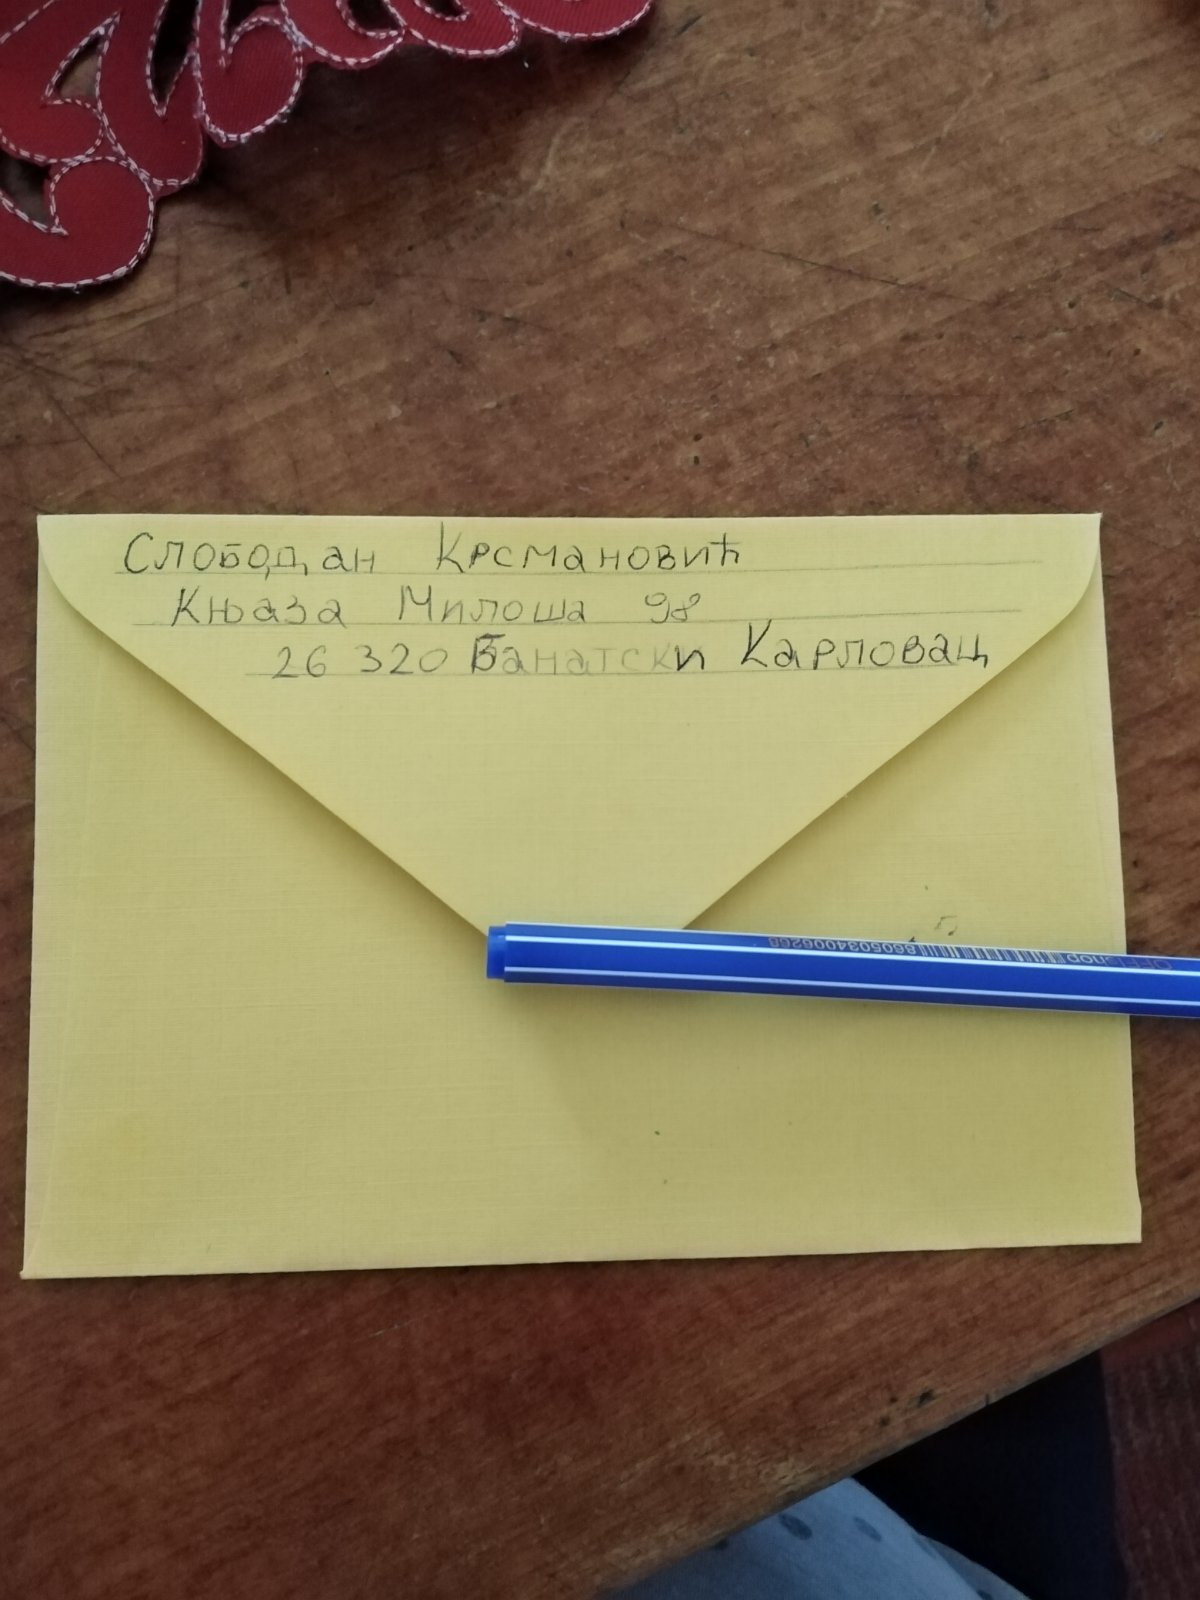 Слободан Крсмановић
Књаза Милоша 98
26 320 Банатски Карловац
8605034006268
OFFIshop